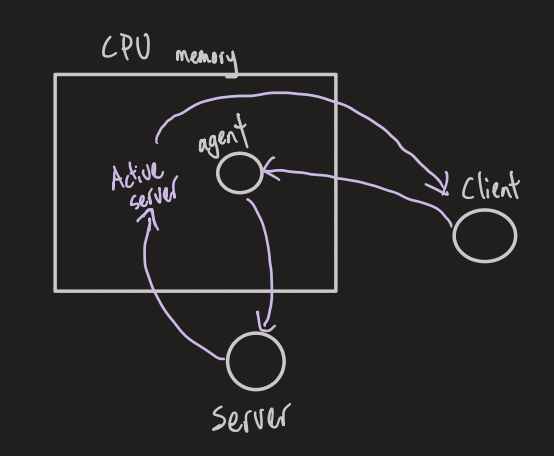 CPU memory
agent
Active
server
Client
Server